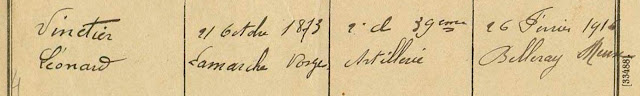 Vinetier 21 Octobre 1873 2e cl 39eme 26 Février 1916
Léonard Lamarche Vosges Artillerie Belleray Meuse
[33488]